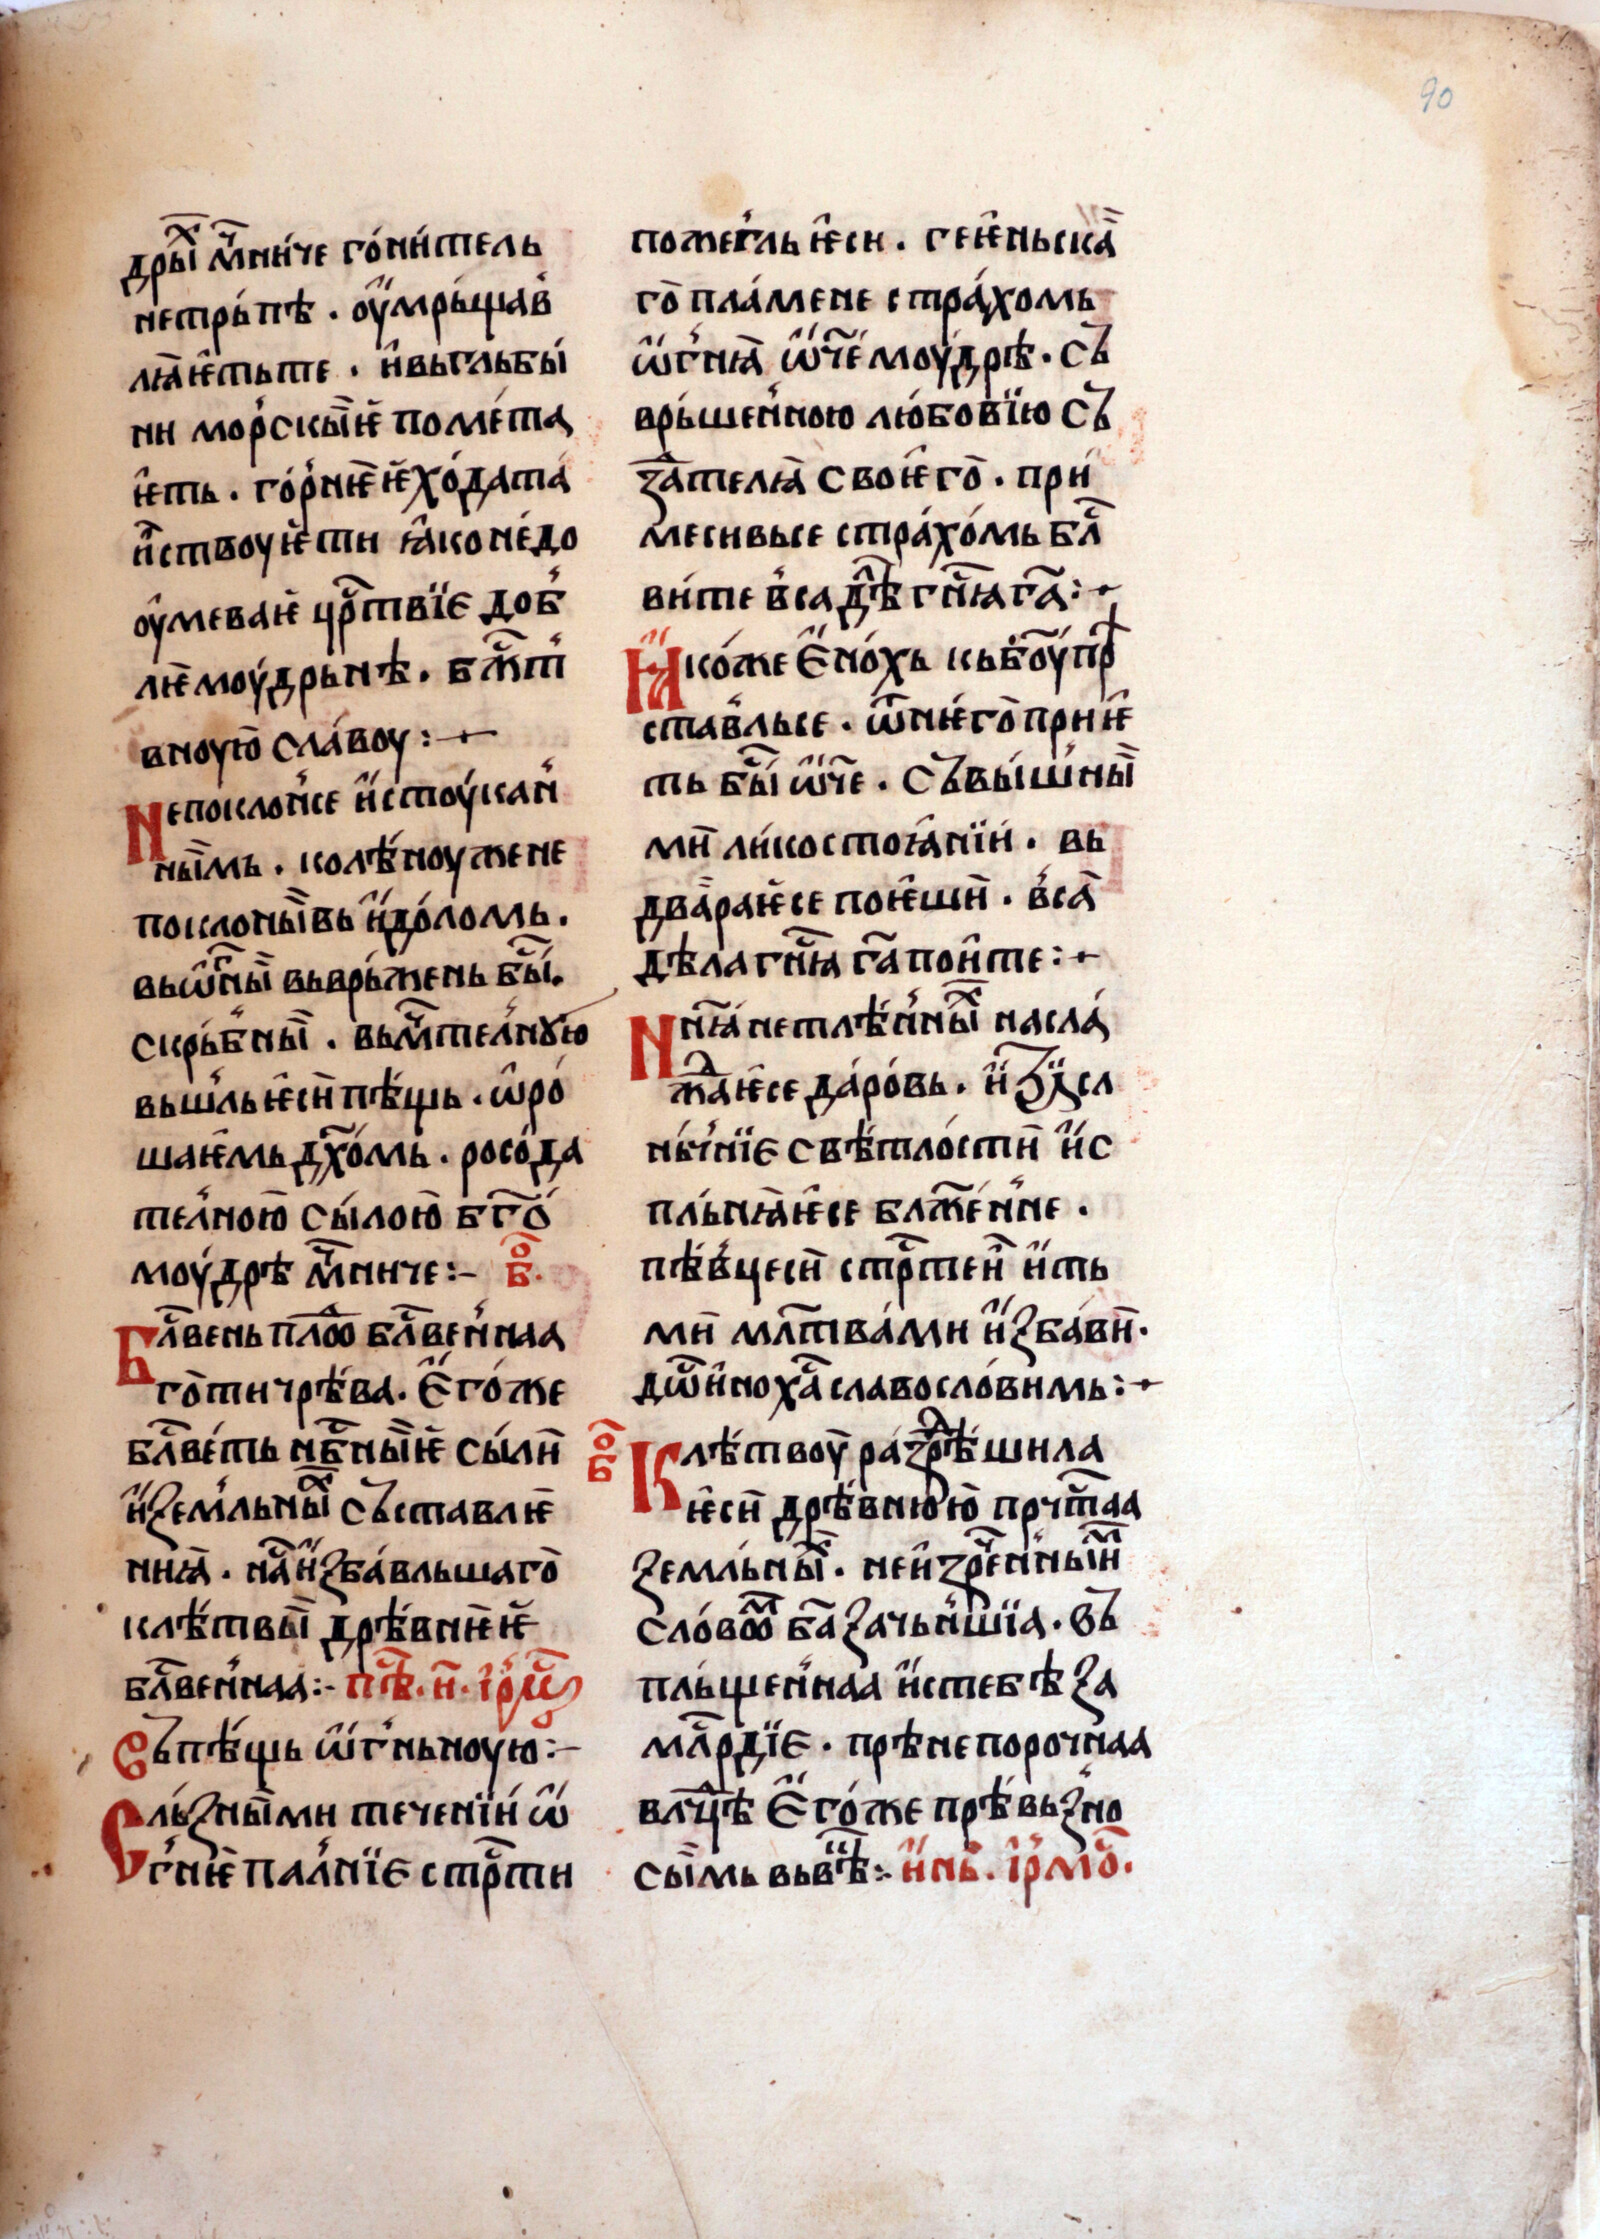 90
дрыⷯ҇ мⷱ҇нⷩиче гонитель
не трьпѣ . оумрьщав
лѩѥть те . и вь гльбы
ни морскыѥ помета
ѥть . горнѥѥ ходата
иствоуѥши ꙗко недо
оумеваѥ црⷭ҇твїе доб
лѥмоудрьнѣ . бжⷭ҇т
вноую славоу :
Не поклонсе истоукан
нымь . колѣноу же не
поклоныⷡь идоломь .
вь ѡгⷩ҇ны вьврьжень бы .
скрьбны . вь мⷱ҇телную
вьшль ѥси пѣщь . ѡро
шаѥмь дх҃омь . росода
телною сылою бг҃о
моудрѣ мⷱ҇ниче : б҃ⷪ .
Блⷭ҇вень плоⷣ блⷭ҇веннаа
го ти чрѣва . Ѥгоже
блⷭ҇веть нбⷭ҇ныѥ сыли
и земльныⷯ съставлѥ
ниꙗ . наⷭ҇ избавльшаго
клѣтвы дрѣвнѥѥ
блⷭ҇веннаа : пѣⷭ҇ . и҃ . ірмⷭ҇
Въ пѣщь ѡгньноую :
Сльзными теченїи ѡ
гнѥ палнїе стрⷭ҇ти
пожегль ѥси . геѥньска
го пламене страхомь
ѡгнꙗ ѡч҃е моудрѣ . съ
врьшенною любовїю съ
затела своѥго . при
меси вьсе страхомь блⷭ҇
вите вса дѣⷧ гн҃ꙗ га҃ :
Ꙗкоже Ѥнохь кь боу҃ прⷣ
ставльсе . ѿ нѥго приѥ
ть бы ѡч҃е . съ вышны
ми ликостоꙗнїи . вь
двараѥсе поѥши . вса
дѣла гн҃ꙗ га҃ поите :
Нн҃ꙗ нетлѣнныⷯ насла
жⷣаѥсе даровь . и зⷣе сл
ньчнїе свѣтлости ис
пльнꙗѥсе блаженне .
пѣвце си стрⷭ҇теи и ть
ми млт҃вами избави .
дⷪ҇иноха славословимь :
б҃ⷪ Клѣтвоу раздрѣшила
ѥси дрѣвнюю прч҃таа
земльныⷯ . неизреⷱ҇нныимⷨ
словоⷨ ба҃ заченшїа . Въ
пльщеннаа ис тебѣ за
млⷭ҇рдїе . прѣнепорочнаа
влⷣ҇це Ѥгоже прѣвьзно
сымь вь вѣⷦ : инь . ірмоⷭ҇ .